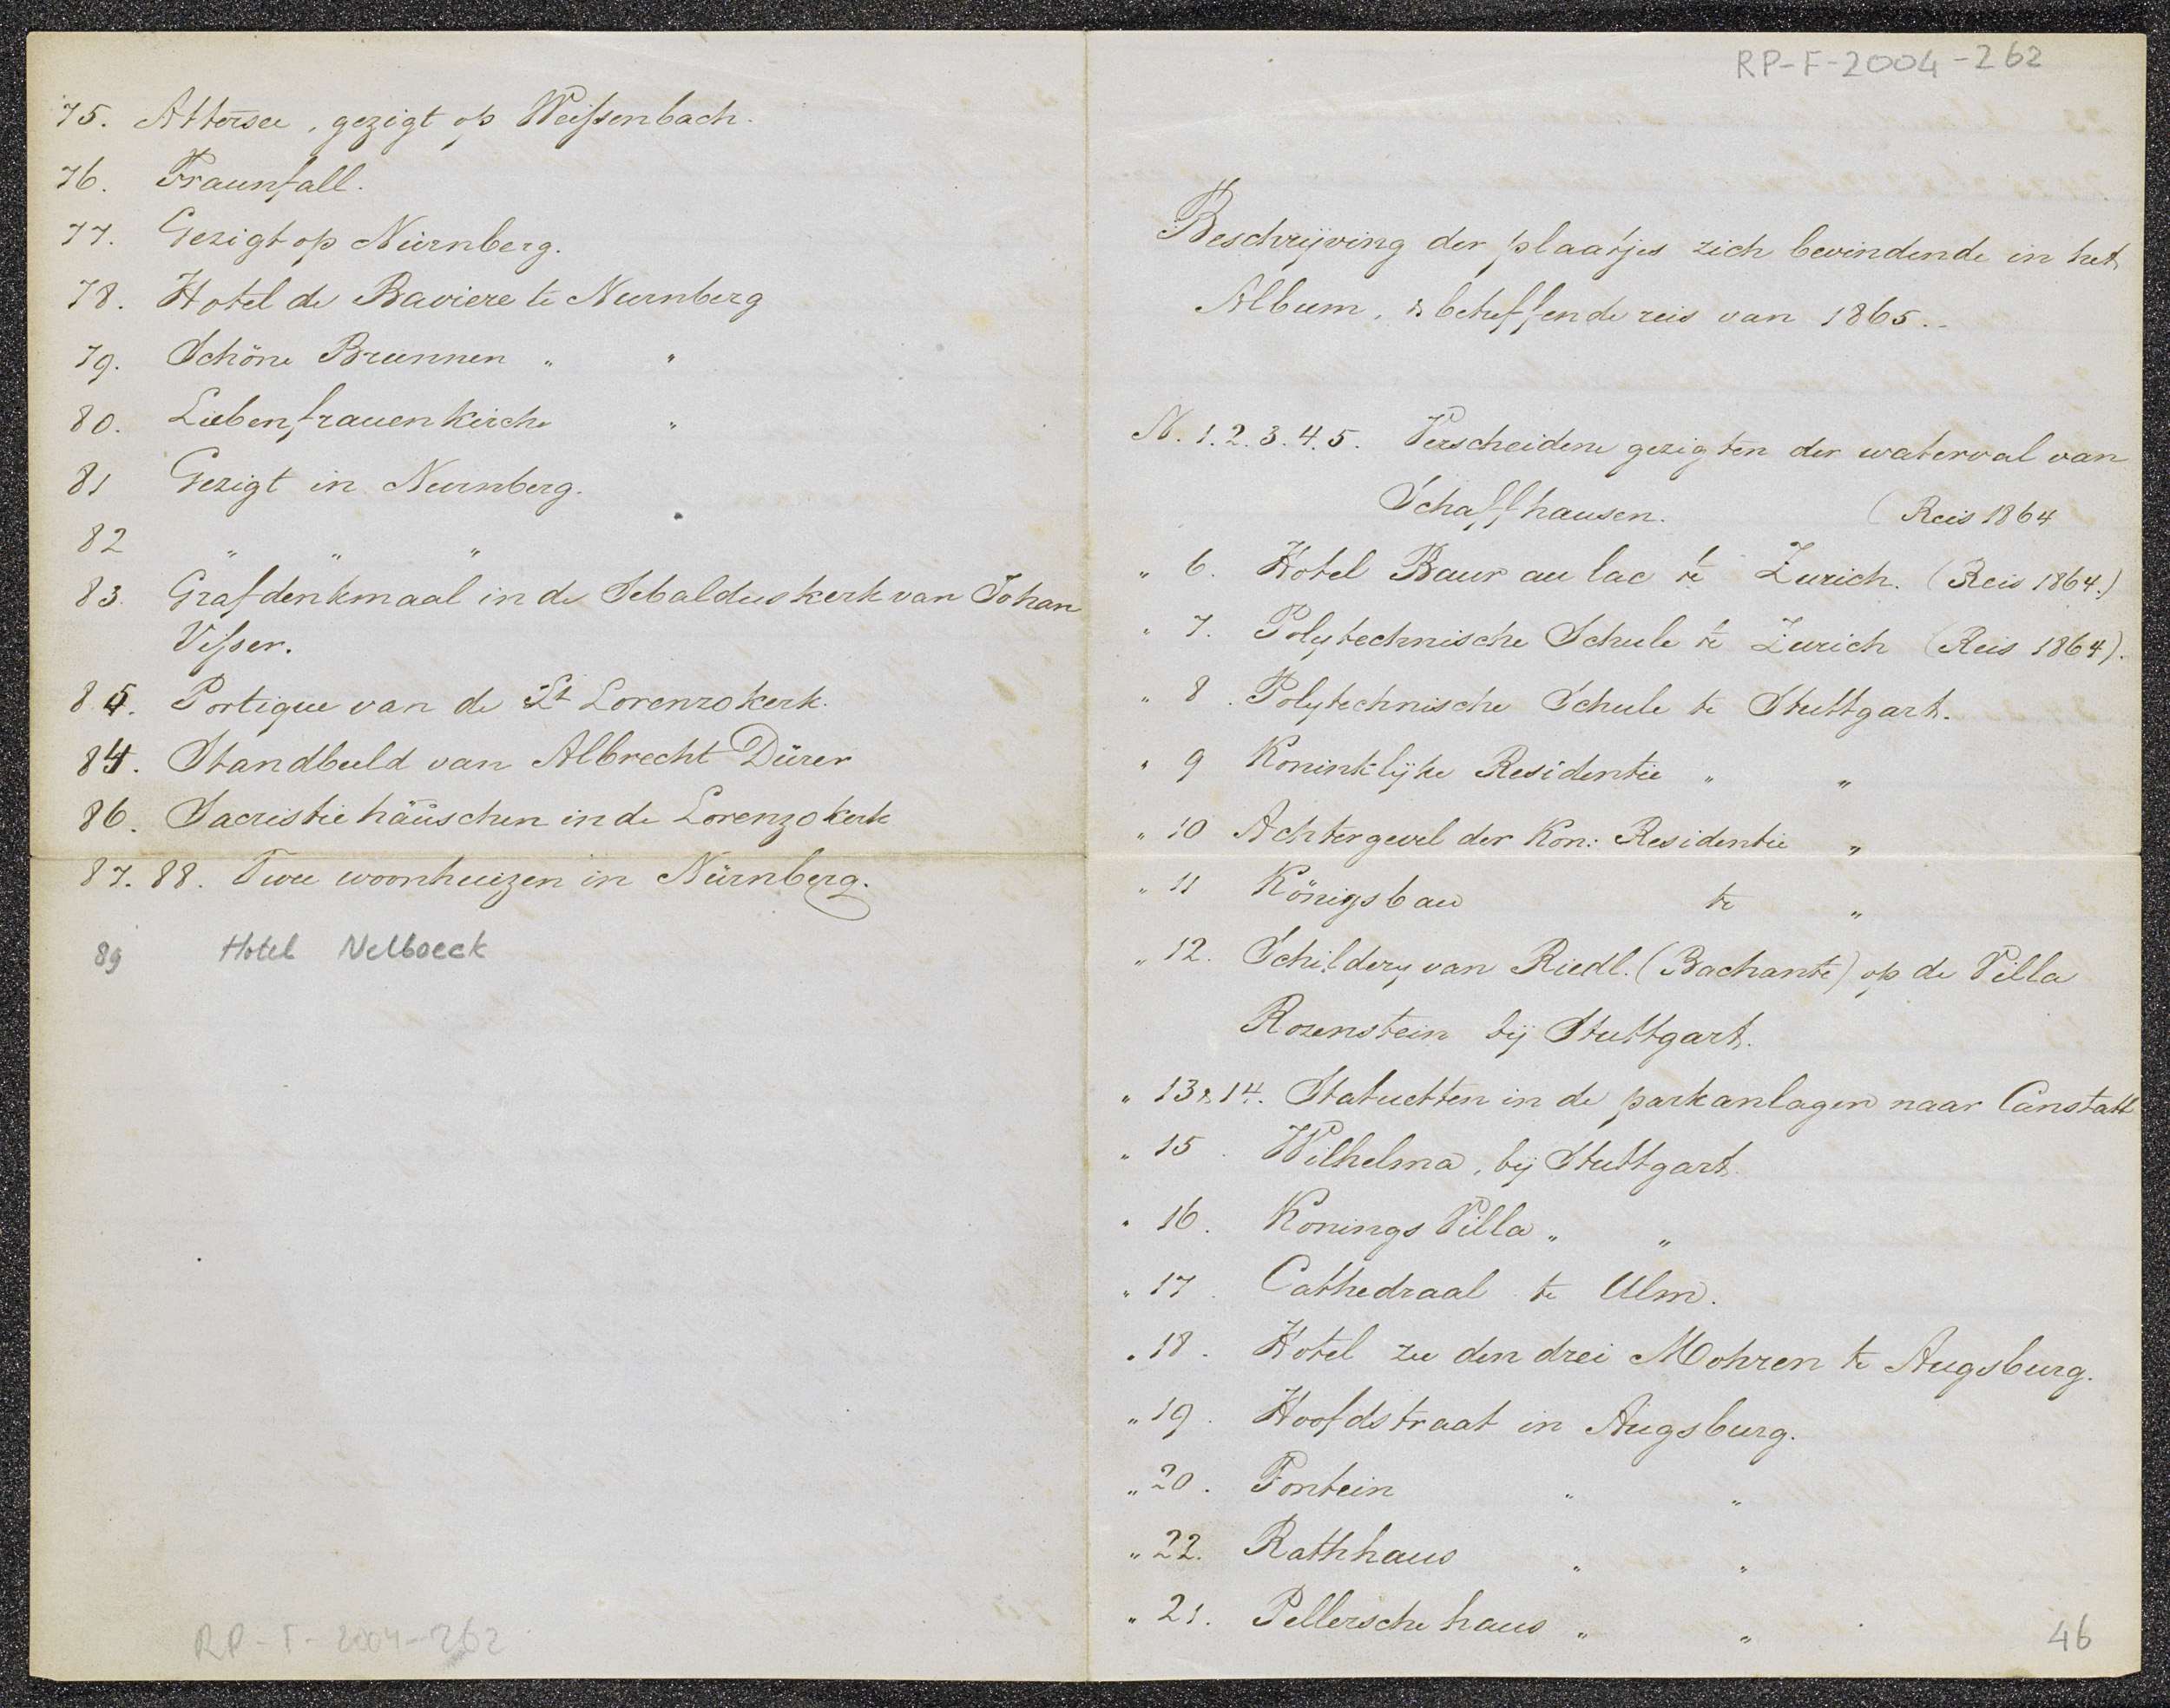 75. Attersee, gezigt op Weißenbach.
76. Traunfall.
77. Gezigt op Nürnberg.
78. Hotel de Baviere te Nurnberg
79. Schöne Brunnen " "
80. Liebenfrauenkirche "
81 Gezigt in Nurnberg.
82 " " "
83. Grafdenkmaal in de Sebalduskerk van Johan
Vißer.
85. Portique van de St Lorenzokerk.
84. Standbeeld van Albrecht Dürer
86. Sacristie häuschen in de Lorenzokerk
87. 88. Twee woonhuizen in Nürnberg.
89 Hotel Nelboeck
RP-F-2004-262
RP-F-2004-262
Beschrijving der plaatjes zich bevindende in het
Album, & betreffende reis van 1865.
N. 1. 2. 3. 4. 5. Verscheidene gezigten der waterval van
Schaffhausen. (Reis 1864
" 6. Hotel Baur au lac te Zurich. (Reis 1864.)
" 7. Polytechnische Schule te Zurich (Reis 1864).
" 8. Polytechnische Schule te Stuttgart.
" 9 Koninklijke Residentie " "
" 10 Achtergevel der Kon: Residentie "
" 11 Königsbau te "
" 12. Schildery van Riedl. (Bachante) op de Villa
Rozenstein bij Stuttgart.
" 13 & 14. Statuetten in de parkanlagen naar Canstatt
" 15. Wilhelma, bij Stuttgart.
" 16. Konings Villa " "
" 17. Cathedraal te Ulm.
" 18. Hotel zu den drei Mohren te Augsburg.
" 19. Hoofdstraat in Augsburg.
" 20. Fontein " "
" 22. Rathhaus " "
" 21. Pellersche haus " "
46